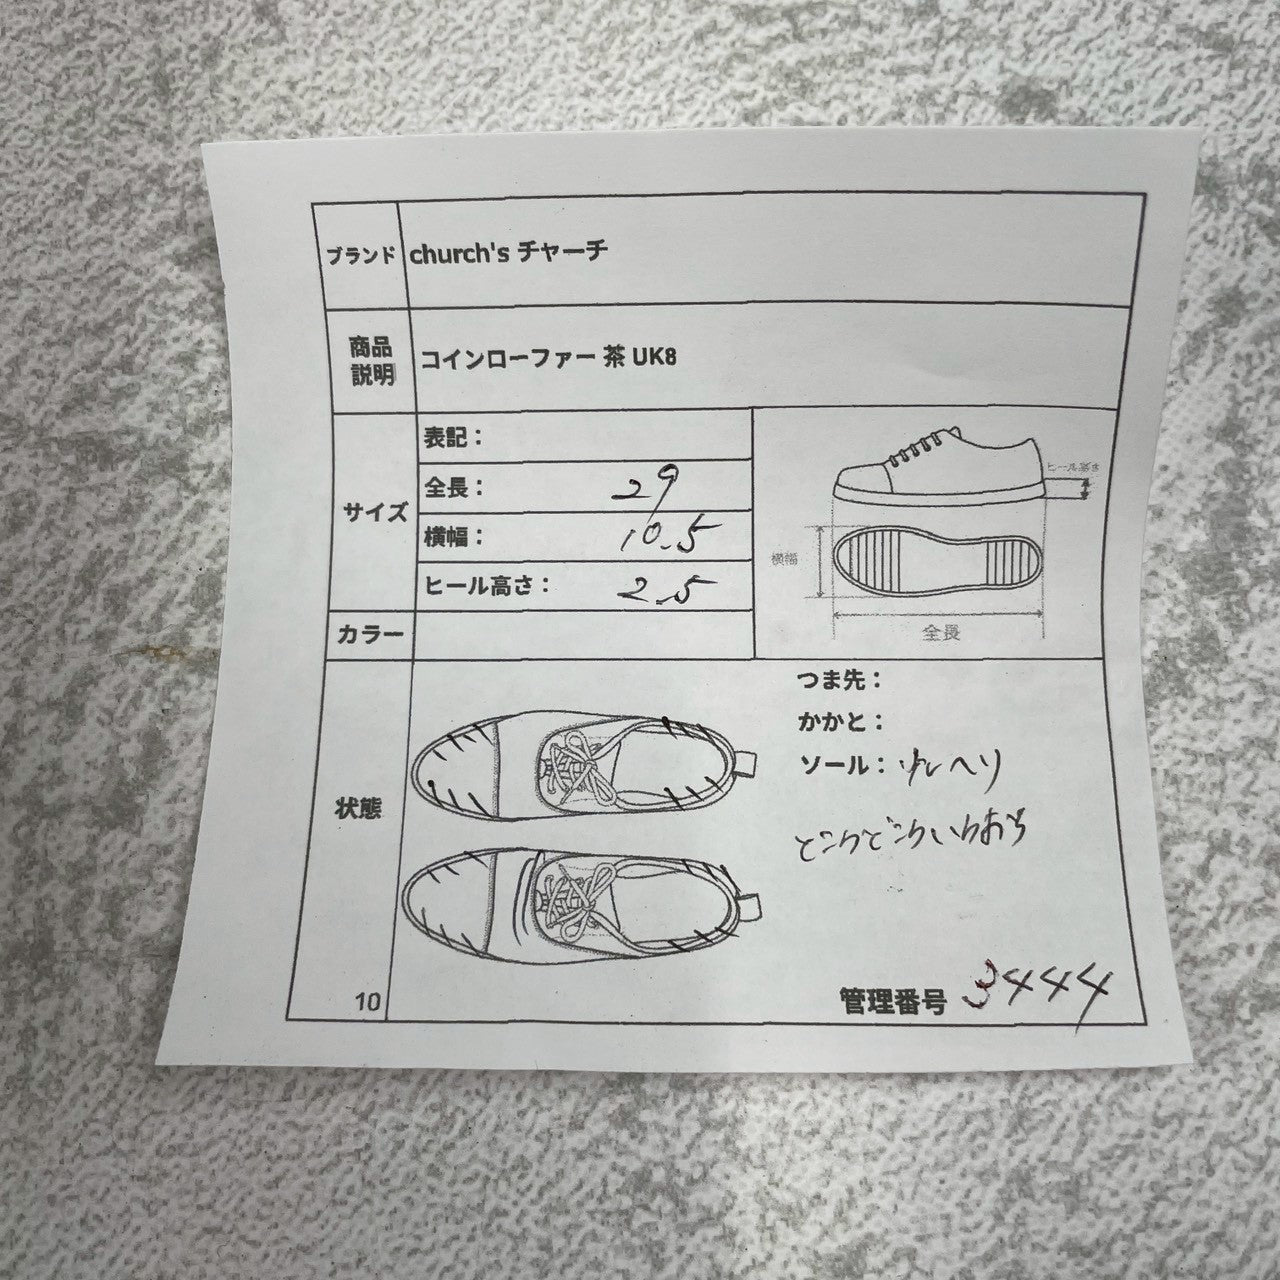 ブランド church's チャーチ
商品説明 コインローファー 茶 UK8
サイズ
表記：
全長： 29
横幅： 10.5
ヒール高さ： 2.5
ヒール高さ
横幅
全長
カラー
状態
つま先：
かかと：
ソール： ヘリ
10
管理番号 3444